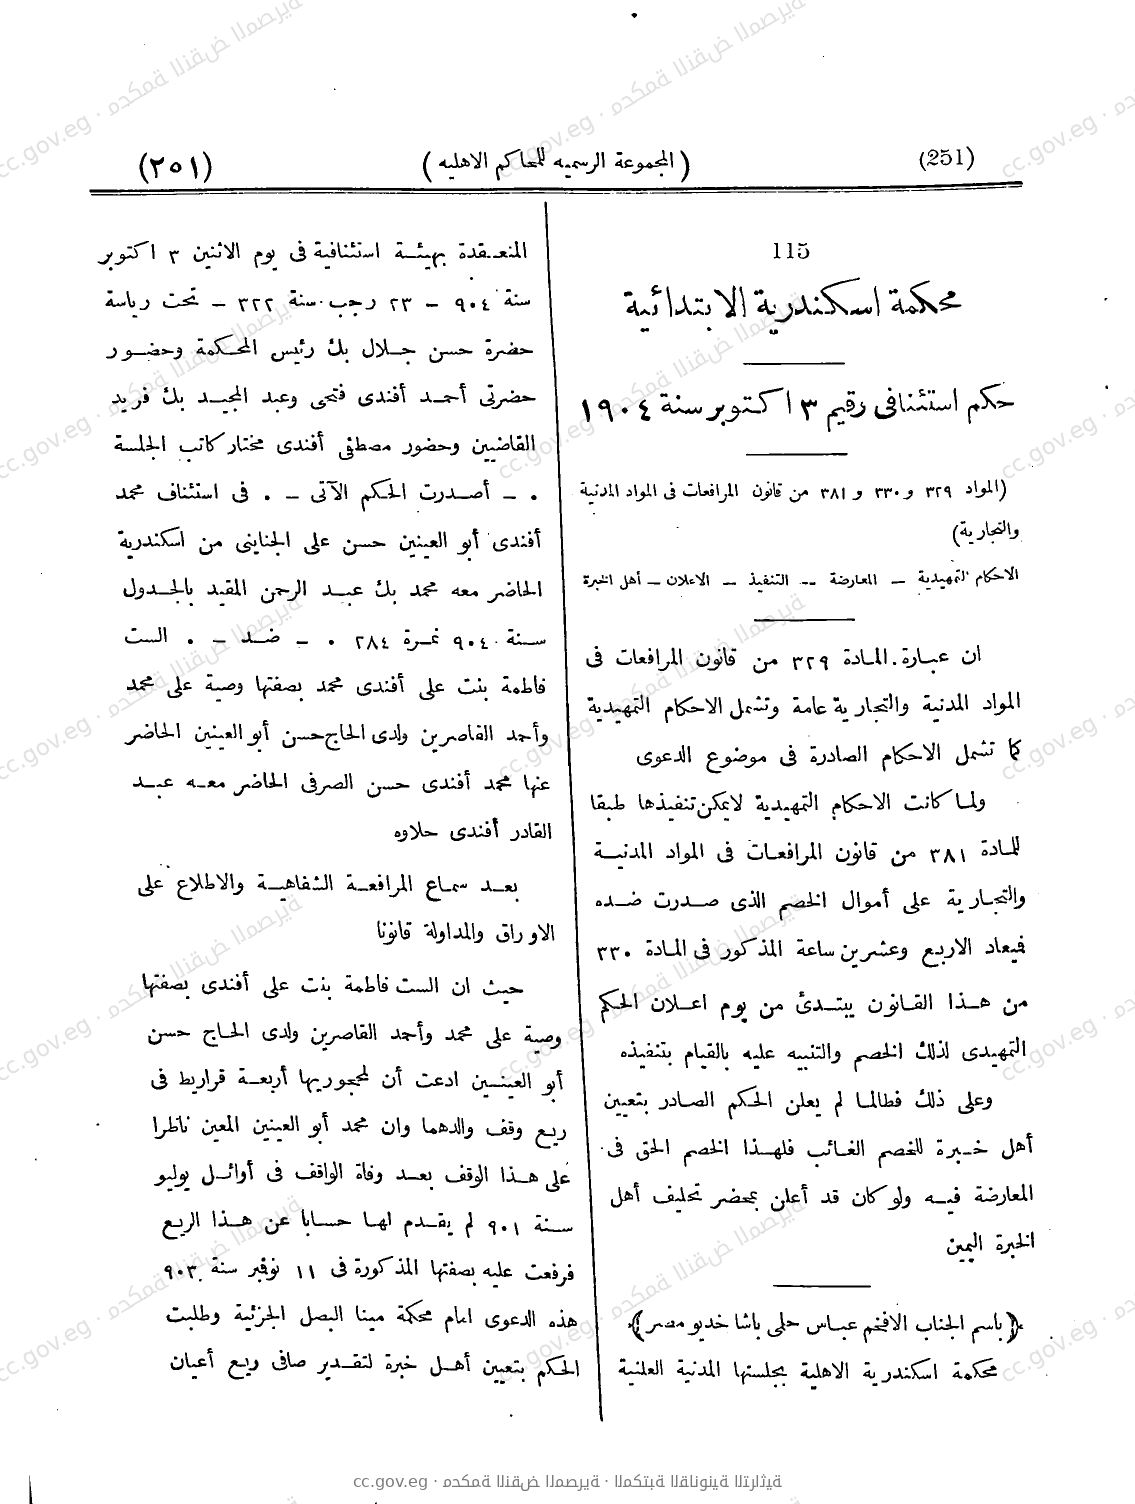 (251)
(المجموعة الرسميه للمحاكم الاهليه)
(٢٥١)
115
محكمة اسكندرية الابتدائية
حكم استئنافى رقيم ٣ اكتوبر سنة ١٩٠٤
(المواد ٣٢٩ و ٣٣٠ و ٣٨١ من قانون المرافعات فى المواد المدنية
والتجارية)
الاحكام التمهيدية – المعارضة – التنفيذ – الاعلان – أهل الخبرة
ان عبارة المادة ٣٢٩ من قانون المرافعات فى
المواد المدنية والتجارية عامة وتشمل الاحكام التمهيدية
كما تشمل الاحكام الصادرة فى موضوع الدعوى
ولما كانت الاحكام التمهيدية لايمكن تنفيذها طبقا
للمادة ٣٨١ من قانون المرافعات فى المواد المدنية
والتجارية على أموال الخصم الذى صدرت ضده
فميعاد الاربع وعشرين ساعة المذكور فى المادة ٣٣٠
من هذا القانون يبتدئ من يوم اعلان الحكم
التمهيدى لذلك الخصم والتنبيه عليه بالقيام بتنفيذه
وعلى ذلك فطالما لم يعلن الحكم الصادر بتعيين
أهل خبرة للخصم الغائب فلهذا الخصم الحق فى
المعارضة فيه ولو كان قد أعلن بمحضر تحليف أهل
الخبرة اليمين
﴿باسم الجناب الافخم عباس حلمى باشا خديو مصر﴾
محكمة اسكندرية الاهلية بجلستها المدنية العلنية
المنعقدة بهيئة استئنافية فى يوم الاثنين ٣ اكتوبر
سنة ٩٠٤ – ٢٣ رجب سنة ٣٢٢ – تحت رياسة
حضرة حسن جلال بك رئيس المحكمة وحضور
حضرتى أحمد أفندى فتحى وعبد المجيد بك فريد
القاضيين وحضور مصطفى أفندى مختار كاتب الجلسة
. – أصدرت الحكم الآتى – . فى استئناف محمد
أفندى أبو العينين حسن على الجناينى من اسكندرية
الحاضر معه محمد بك عبد الرحمن المقيد بالجدول
سنة ٩٠٤ نمرة ٢٨٤ . – ضد – . الست
فاطمة بنت على أفندى محمد بصفتها وصية على محمد
وأحمد القاصرين ولدى الحاج حسن أبو العينين الحاضر
عنها محمد أفندى حسن الصرفى الحاضر معه عبد
القادر أفندى حلاوه
بعد سماع المرافعة الشفاهية والاطلاع على
الاوراق والمداولة قانونا
حيث ان الست فاطمة بنت على أفندى بصفتها
وصية على محمد وأحمد القاصرين ولدى الحاج حسن
أبو العينين ادعت أن لمحجوريها أربعة قراريط فى
ريع وقف والدهما وان محمد أبو العينين المعين ناظرا
على هذا الوقف بعد وفاة الواقف فى أوائل يوليو
سنة ٩٠١ لم يقدم لها حسابا عن هذا الريع
فرفعت عليه بصفتها المذكورة فى ١١ نوفمبر سنة ٩٠٣
هذه الدعوى امام محكمة مينا البصل الجزئية وطلبت
الحكم بتعيين أهل خبرة لتقدير صافى ريع أعيان
cc.gov.eg · محكمة النقض المصرية · المكتبة القانونية التراثية